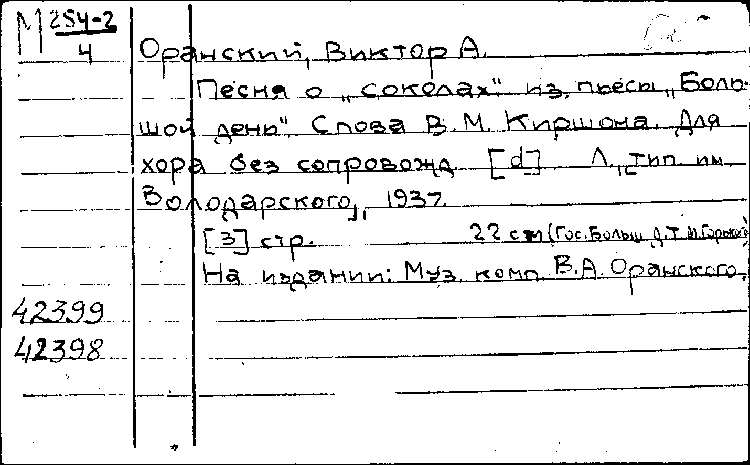 М 284-2
4
Оранский, Виктор А.
Песня о „соколах" из пьесы „Боль-
шой день". Слова В. М. Киршона. Для
хора без сопровожд. [d] Л., тип. им.
Володарского, 1937.
[3] стр. 22 см (Гос. Больш. Д. Т. М. Горького)
На издании: Муз. комп. В. А. Оранского.
42399
42398